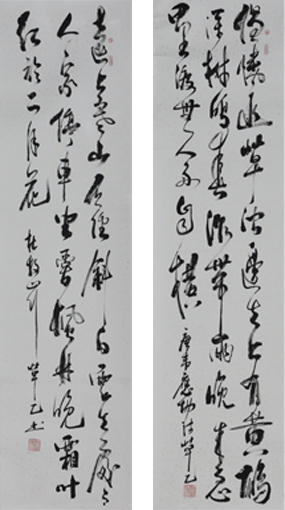 獨憐幽草澗邊生上有黄鸝
深樹鳴春潮带雨晚来急
野渡無人舟自横
唐韋應物詩
遠上寒山石徑斜白雲生處有
人家停車坐愛楓林晚霜叶
红於二月花
杜牧山行